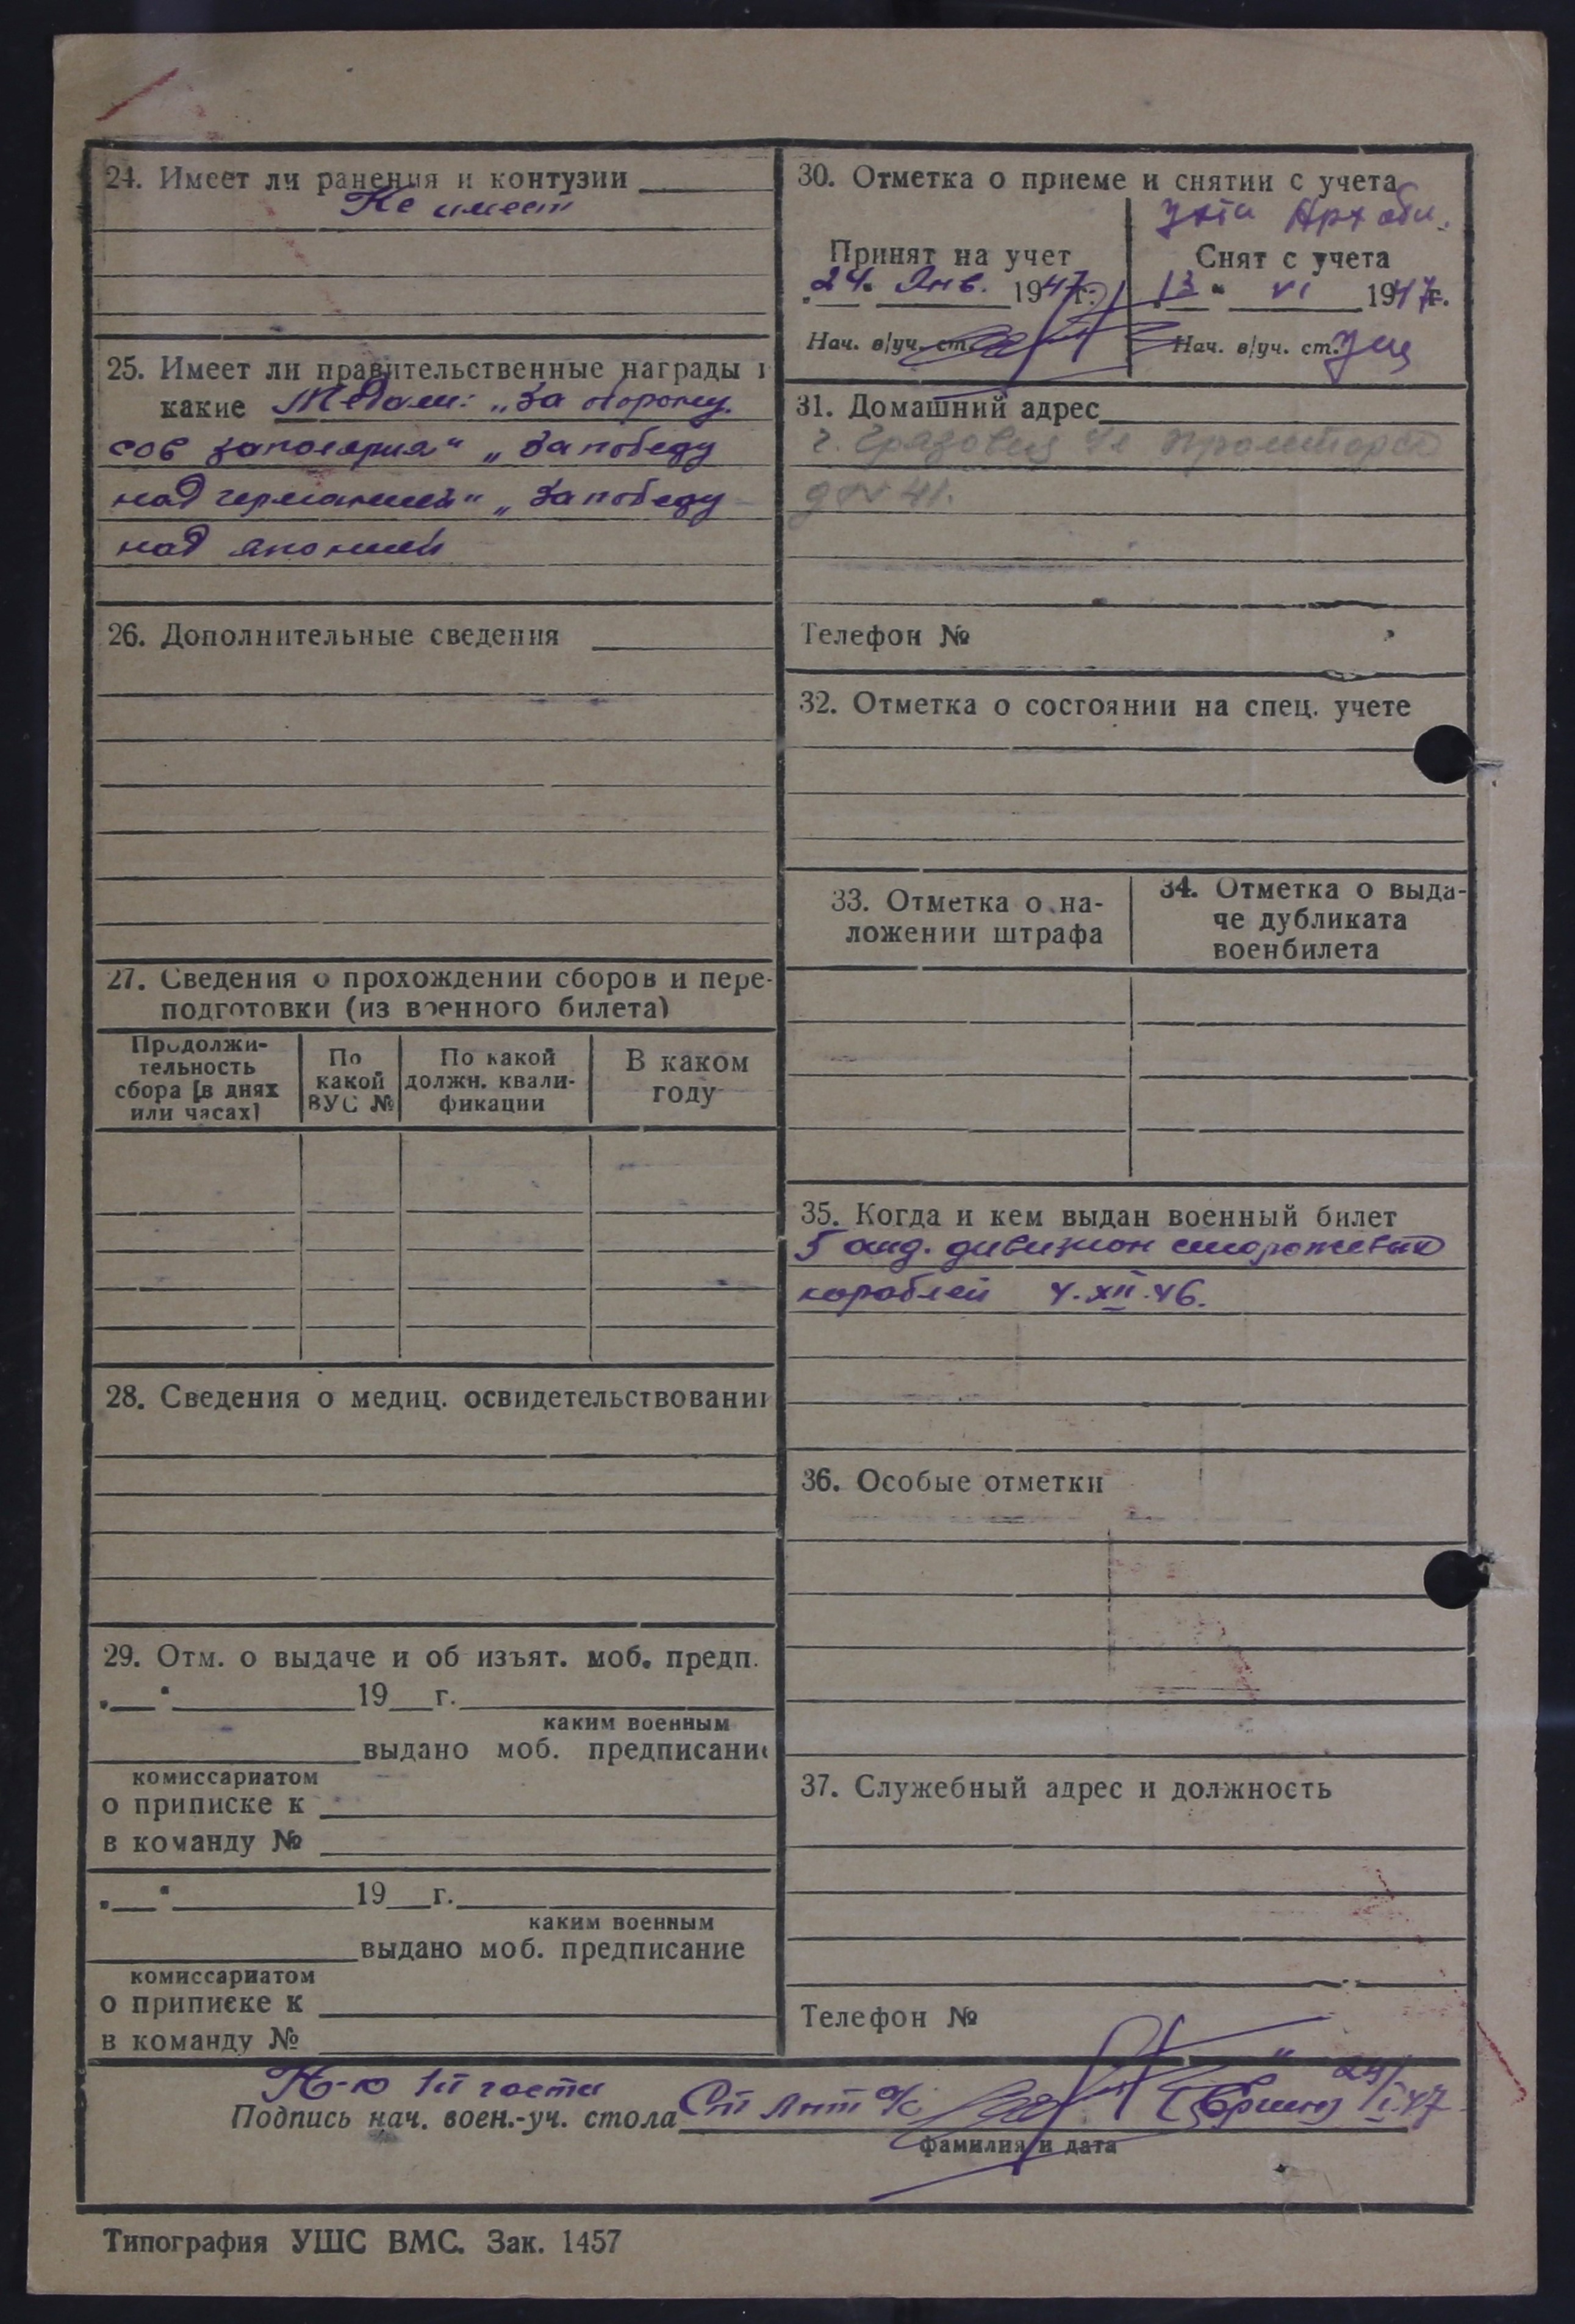 24. Имеет ли ранения и контузии
Не имеет
25. Имеет ли правительственные награды и
какие Медали: „За оборону
сов заполярия" „За победу
над германией" „За победу
над японией
26. Дополнительные сведения
27. Сведения о прохождении сборов и пере-
подготовки (из военного билета)
Продолжи-
тельность
сбора [в днях
или часах]
По
какой
ВУС №
По какой
должн. квали-
фикации
В каком
году
28. Сведения о медиц. освидетельствовании
29. Отм. о выдаче и об изъят. моб. предп.
19 г.
каким военным
выдано моб. предписание
комиссариатом
о приписке к
в команду №
19 г.
каким военным
выдано моб. предписание
комиссариатом
о приписке к
в команду №
30. Отметка о приеме и снятии с учета
Арх обл.
Принят на учет
24. Янв. 1947г.
Нач. в/уч. ст.
Снят с учета
13 " VI 1947г.
Нач. в/уч. ст.
31. Домашний адрес
г. Грязовец ул
д № 41.
Телефон №
32. Отметка о состоянии на спец. учете
33. Отметка о на-
ложении штрафа
34. Отметка о выда-
че дубликата
военбилета
35. Когда и кем выдан военный билет
5 отд. дивизион сторожевых
кораблей 4.XII.46.
36. Особые отметки
37. Служебный адрес и должность
Телефон №
части
Подпись нач. воен.-уч. стола Ст Лнт 24/I 47
фамилия и дата
Типография УШС ВМС. Зак. 1457